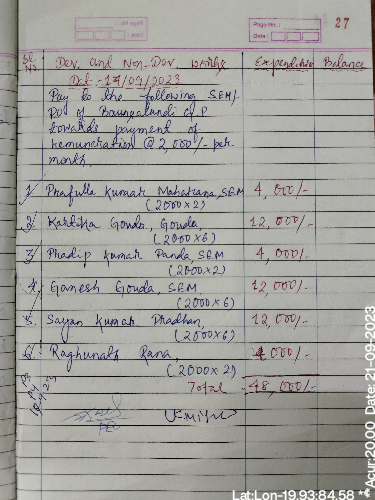 Page No.: 27
Date:
Sl. No. Dev. and Non-Dev. works Expenditure Balance
Dt -
Pay to the following SEM/
of G.P
towards payment of
remuneration @ 2,000/- per
month.
1 Prafulla Kumar Maharana, SEM 4,000/-
(2000×2)
2 Kartika Gouda, Gouda, 12,000/-
(2000×6)
3 Pradip Kumar Panda, SEM 4,000/-
(2000×2)
4. Ganesh Gouda, SEM 12,000/-
(2000×6)
5. Sayan Kumar Pradhan, 12,000/-
(2000×6)
6. Raghunath Rana, 4,000/-
(2000×2)
Total 48,000/-
PEO
Lat:Lon-19.93:84.58 **Acur:20.00 Date: 21-09-2023